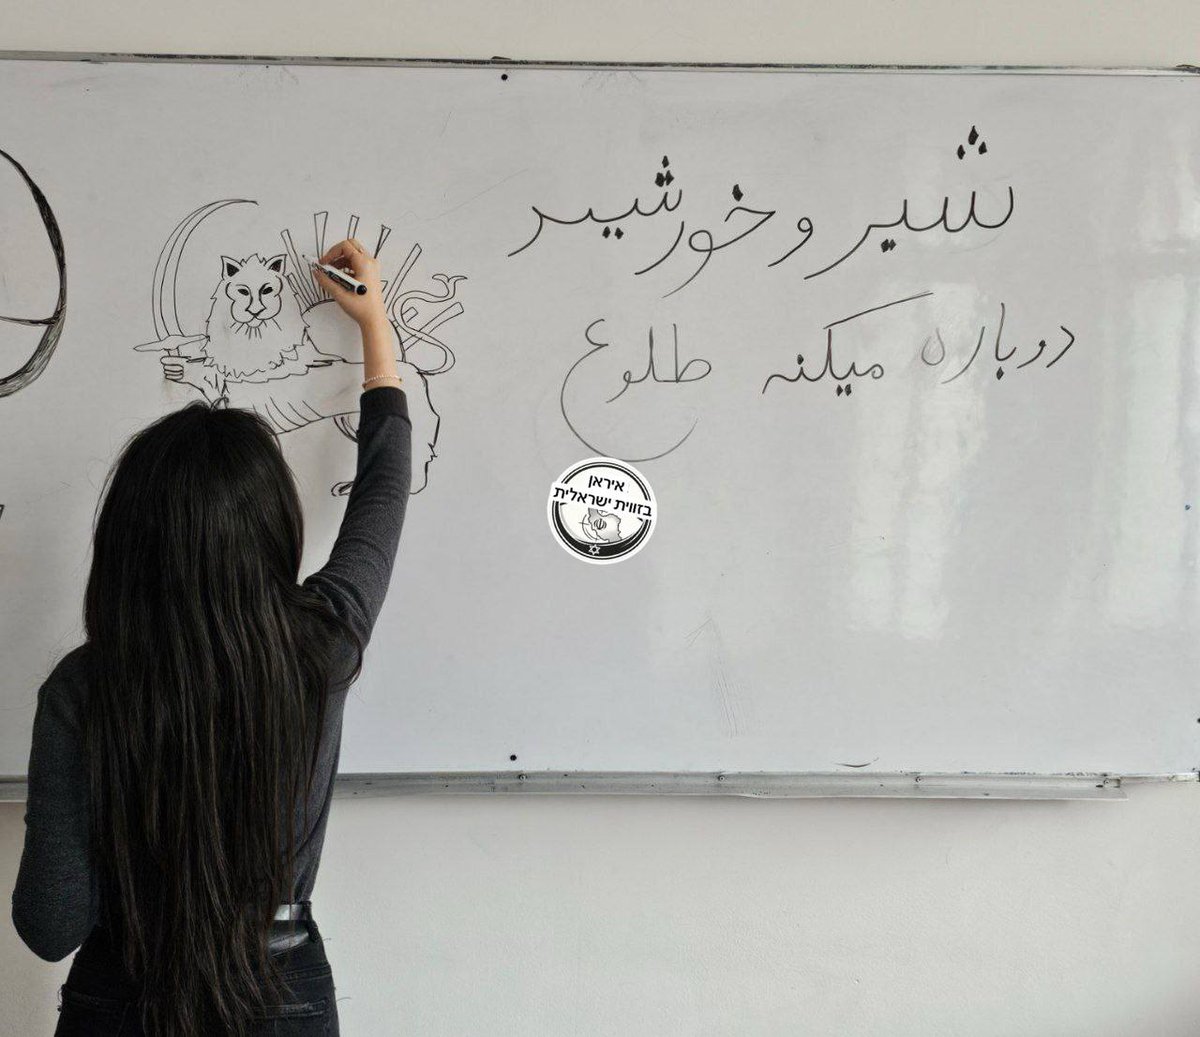 شیر و خورشید
دوباره میکنه طلوع
איראן
בזווית ישראלית